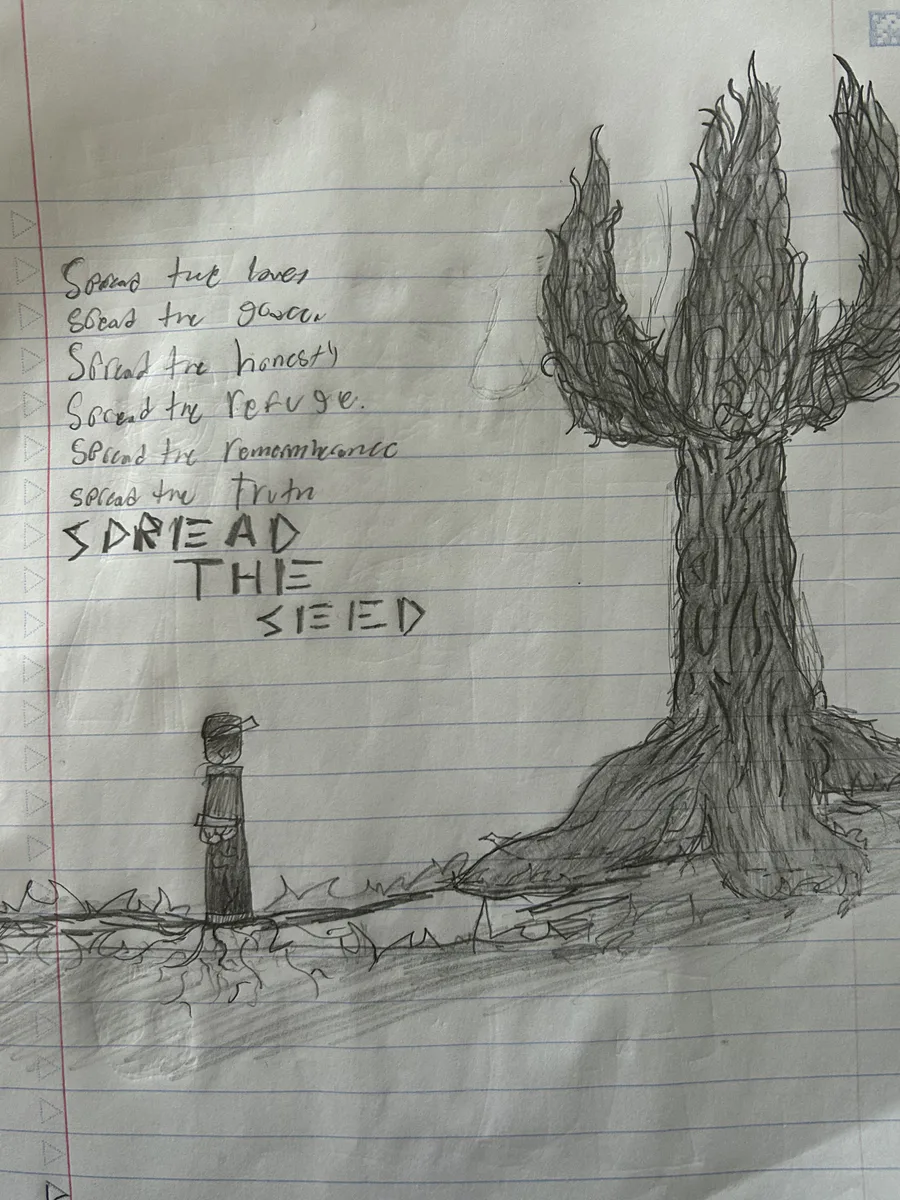 Spread the loves
spread the
Spread the honesty
Spread the refuge.
Spread the rememberance
spread the truth
SPREAD
THE
SEED